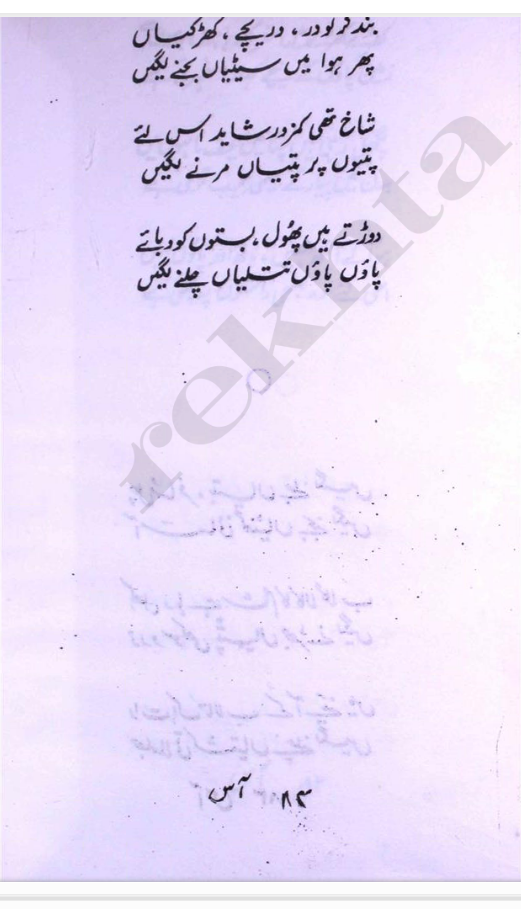 بند کر لو در، دریچے، کھڑکیاں
پھر ہوا میں سیٹیاں بجنے لگیں
شاخ تھی کمزور شاید اس لئے
پتیوں پر پتیاں مرنے لگیں
دوڑتے ہیں پھُول، بستوں کو دبائے
پاؤں پاؤں تتلیاں چلنے لگیں
rekhta
۸۳ آس